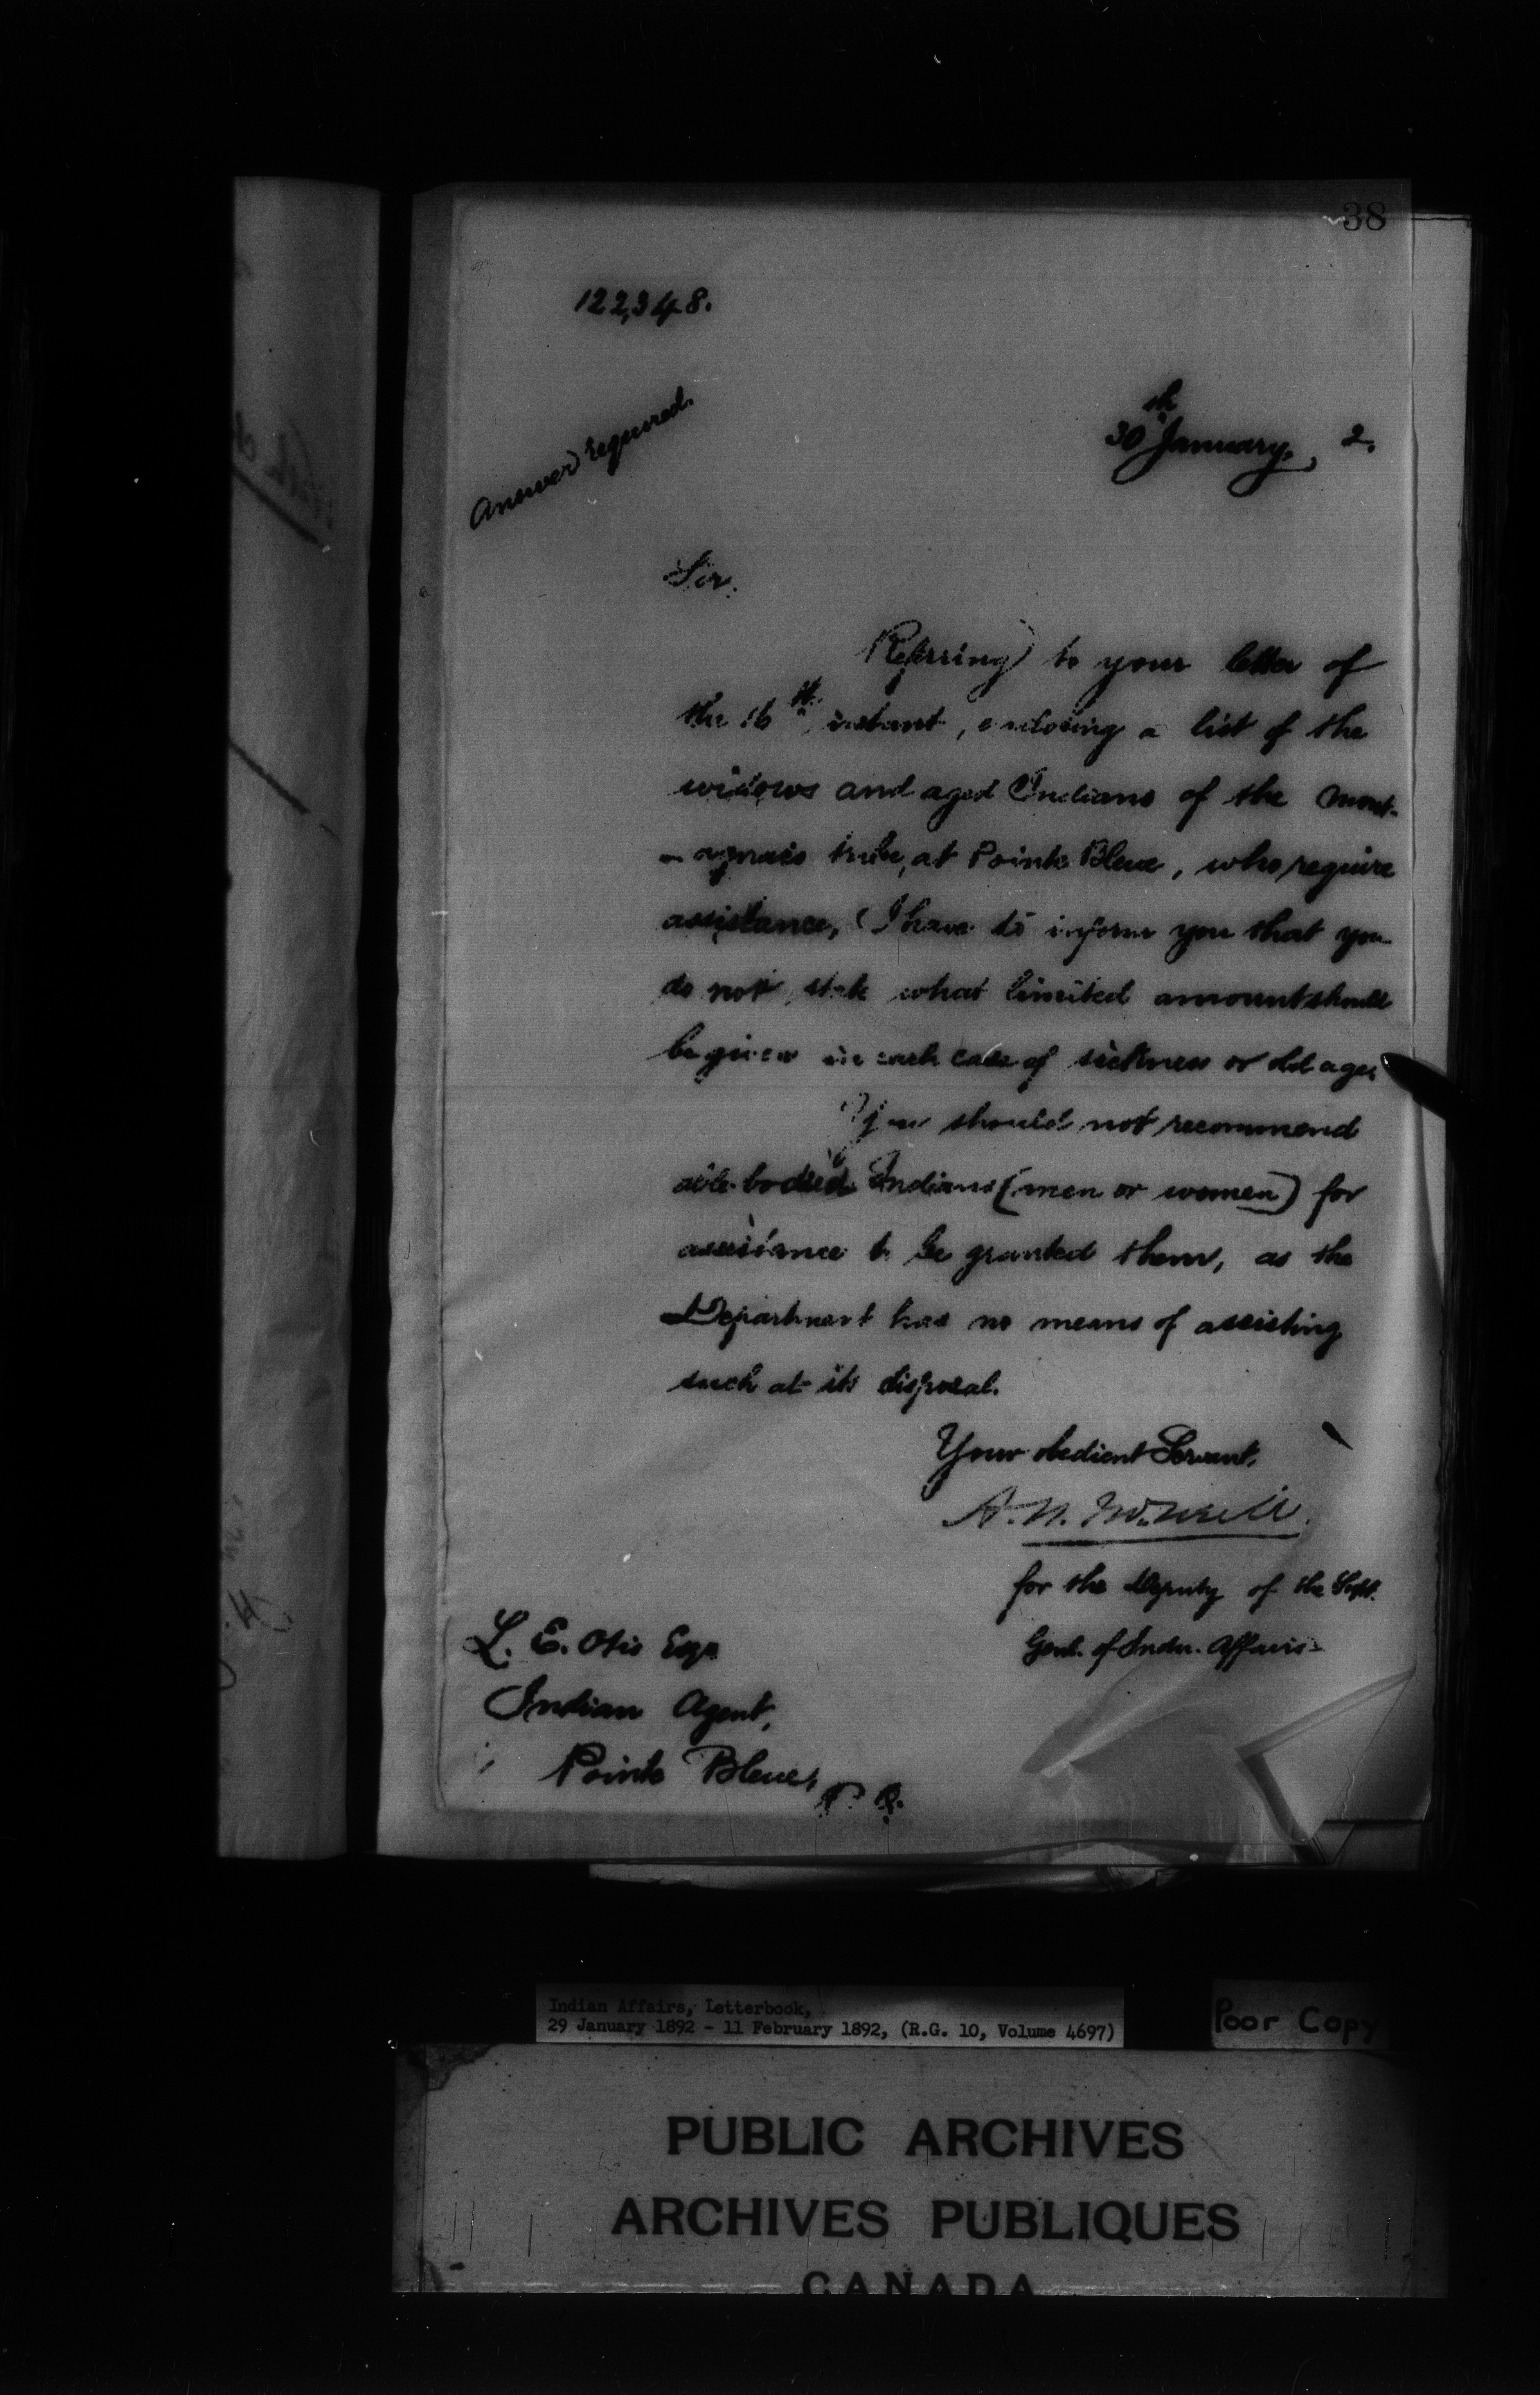 38
122,348.
30th January, 2.
Answer required.
Sir.
Referring to your letter of
the 16th instant, enclosing a list of the
widows and aged Indians of the Mont-
-agnais tribe, at Pointe Bleue, who require
assistance, I have to inform you that you
do not state what limited amount should
be given in each case of sickness or old age.
You should not recommend
able-bodied Indians (men or women) for
assistance to be granted them, as the
Department has no means of assisting
such at its disposal.
Your obedient Servant,
A. N. McNeill.
for the Deputy of the Supt.
Genl. of Indn. Affairs
L. E. Otis Esq.
Indian Agent,
Pointe Bleue,
P. Q.
Indian Affairs, Letterbook,
29 January 1892 - 11 February 1892, (R.G. 10, Volume 4697)
Poor Copy
PUBLIC ARCHIVES
ARCHIVES PUBLIQUES
CANADA